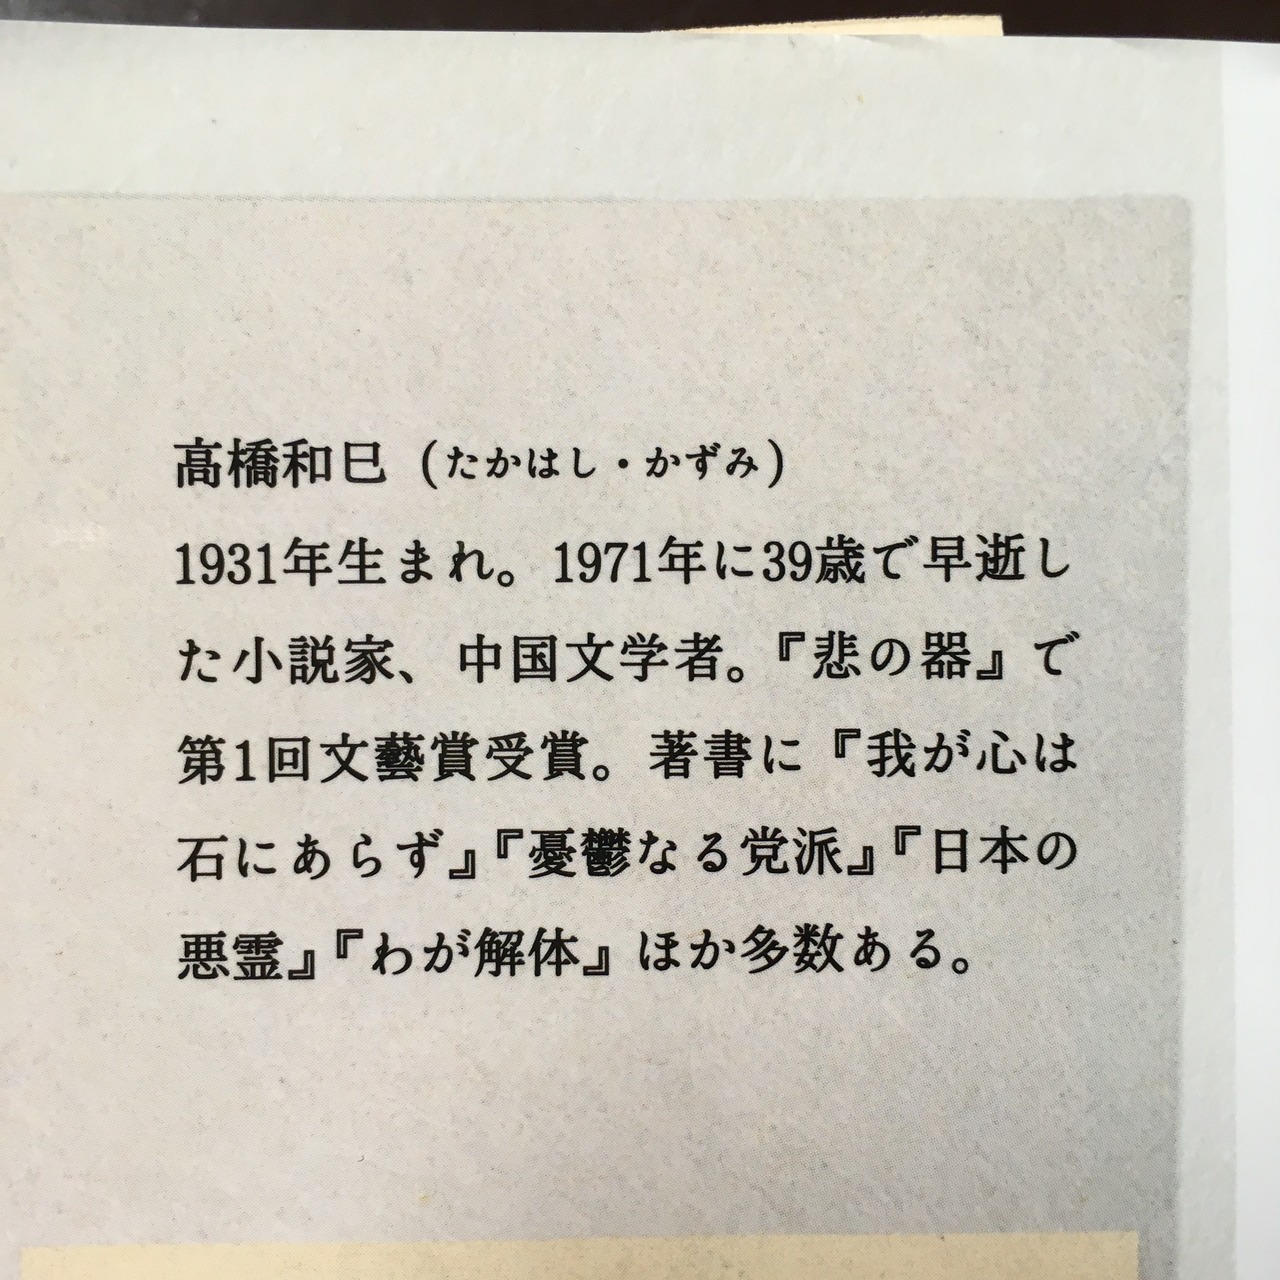 高橋和巳（たかはし・かずみ）
1931年生まれ。1971年に39歳で早逝し
た小説家、中国文学者。『悲の器』で
第1回文藝賞受賞。著書に『我が心は
石にあらず』『憂鬱なる党派』『日本の
悪霊』『わが解体』ほか多数ある。